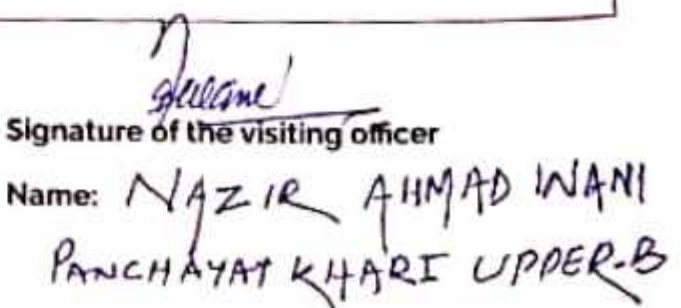 Signature of the visiting officer
Name: NAZIR AHMAD WANI
PANCHAYAT KHARI UPPER-B